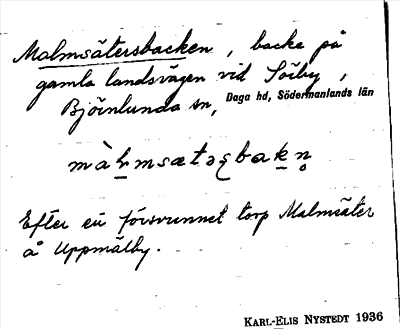 Malmsätersbacken, backe på
gamla landsvägen vid Sörby,
Björnlunda sn, Daga hd, Södermanlands län
Efter en försvunnet torp Malmsäter
å Uppmälby.
KARL-ELIS NYSTEDT 1936